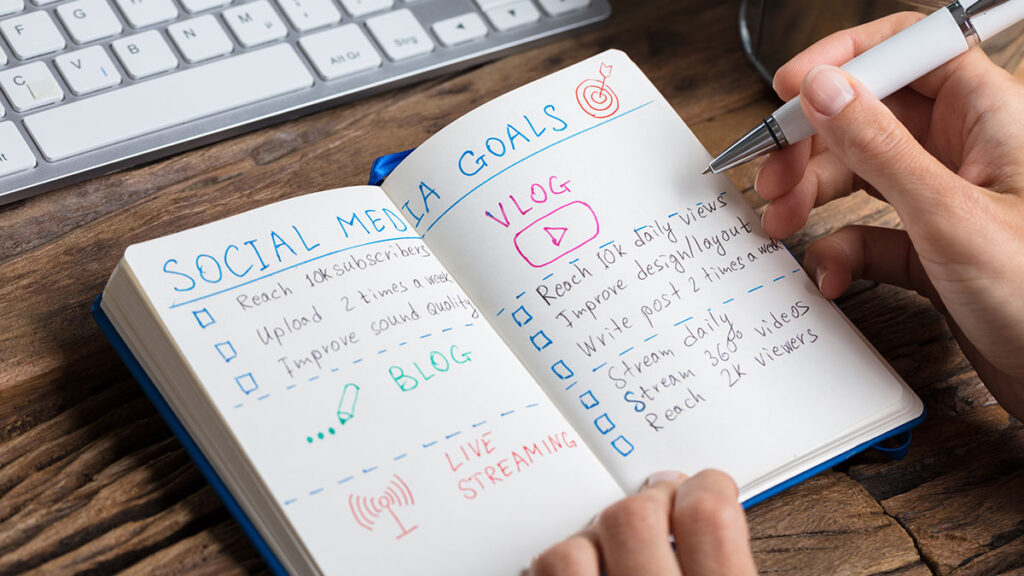 F G
C V B N M
Alt Alt Gr Strg
SOCIAL MEDIA GOALS
Reach 10k subscribers
Upload 2 times a week
Improve sound quality
BLOG
LIVE
STREAMING
VLOG
Reach 10k daily views
Improve design/layout
Write post 2 times a week
Stream daily
Stream 360° videos
Reach 2k viewers